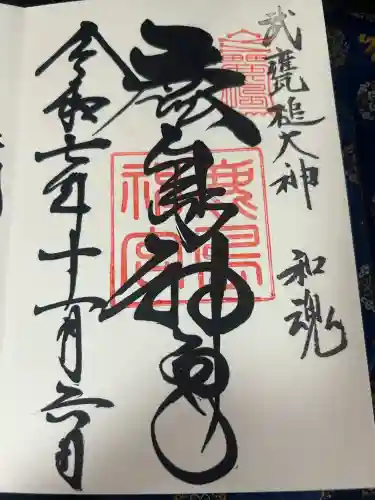 武甕槌大神 和魂
鹿島神宮
鹿島
神宮
令和七年十一月六日